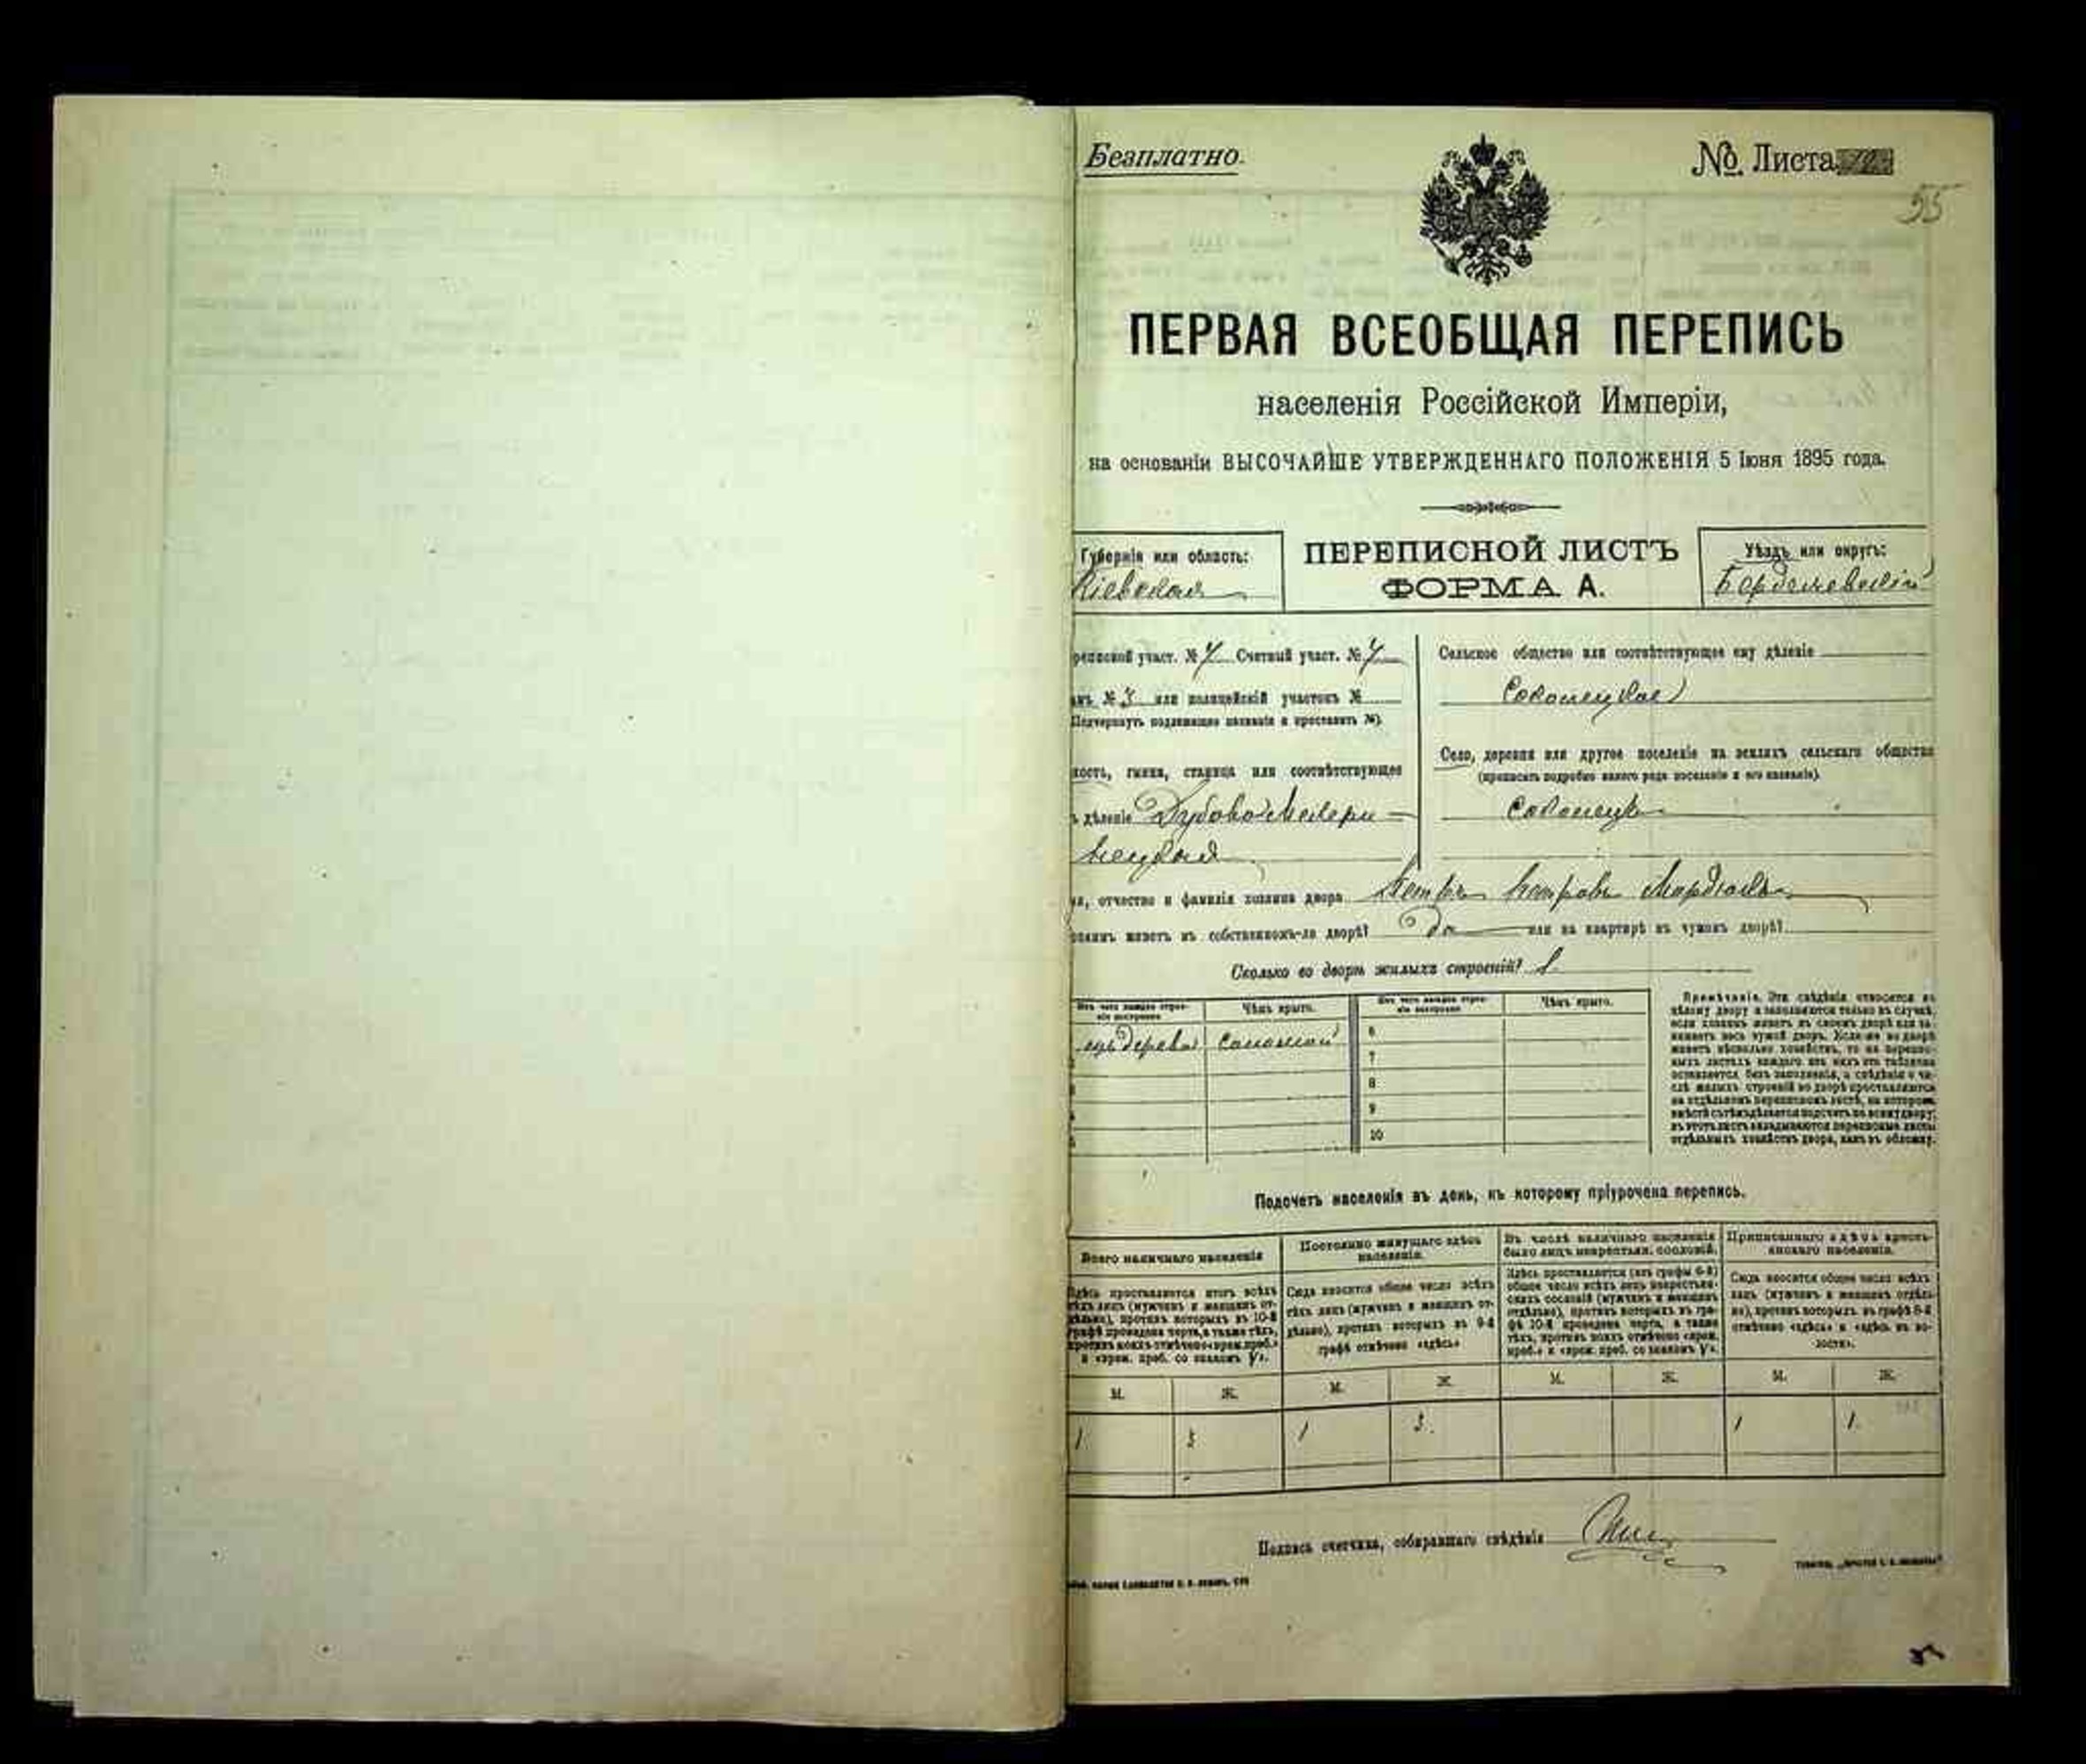 Безплатно.
№ Листа
55
ПЕРВАЯ ВСЕОБЩАЯ ПЕРЕПИСЬ
населенія Россійской Имперіи,
на основаніи ВЫСОЧАЙШЕ УТВЕРЖДЕННАГО ПОЛОЖЕНІЯ 5 Іюня 1895 года.
Губернія или область:
Кіевская
ПЕРЕПИСНОЙ ЛИСТЪ
ФОРМА А.
Уѣздъ или округъ:
Бердичевскій
реписной участ. № 7 Счетный участ. № 7
анъ № 3 или полицейскій участокъ №
Подчеркнуть подлежащее названіе и проставить №).
ность, гмина, станица или соотвѣтствующее
ъ дѣленіе Дубово-Махари-
нецкая
Сельское общество или соотвѣтствующее ему дѣленіе
Соколецкое
Село, деревня или другое поселеніе на земляхъ сельскаго общества
(прописать подробно какого рода поселеніе и его названіе).
Соколецъ
я, отчество и фамилія хозяина двора Петръ Петровъ
озяинъ живетъ въ собственномъ-ли дворѣ? Да или на квартирѣ въ чужомъ дворѣ?
Сколько во дворѣ жилыхъ строеній? 1.
Изъ чего каждое строе-
ніе построено
Чѣмъ крыто.
Изъ чего каждое строе-
ніе построено
Чѣмъ крыто.
изъ дерева соломой
6
7
8
9
10
Примѣчаніе. Эти свѣдѣнія относятся къ
цѣлому двору и заполняются только въ случаѣ,
если хозяинъ живетъ въ своемъ дворѣ или за-
нимаетъ весь чужой дворъ. Если-же во дворѣ
живетъ нѣсколько хозяйствъ, то на перепис-
ныхъ листахъ каждаго изъ нихъ эта табличка
оставляется безъ заполненія, а свѣдѣнія о чи-
слѣ жилыхъ строеній во дворѣ проставляются
на отдѣльномъ переписномъ листѣ, на которомъ
вмѣстѣ съ тѣмъ дѣлается подсчетъ по всему двору;
въ этотъ листъ вкладываются переписные листы
отдѣльныхъ хозяйствъ двора, какъ въ обложку.
Подсчетъ населенія въ день, къ которому пріурочена перепись.
Всего наличнаго населенія
Здѣсь проставляется итогъ всѣхъ
тѣхъ лицъ (мужчинъ и женщинъ от-
дѣльно), противъ которыхъ въ 10-й
графѣ проведена черта, а также тѣхъ,
противъ коихъ отмѣчено «врем. преб.»
и «врем. преб. со знакомъ V».
Постоянно живущаго здѣсь
населенія.
Сюда вносится общее число всѣхъ
тѣхъ лицъ (мужчинъ и женщинъ от-
дѣльно), противъ которыхъ въ 9-й
графѣ отмѣчено «здѣсь»
Въ числѣ наличнаго населенія
было лицъ некрестьян. сословій.
Здѣсь проставляется (изъ графы 6-й)
общее число всѣхъ лицъ некрестьян-
скихъ сословій (мужчинъ и женщинъ
отдѣльно), противъ которыхъ въ гра-
фѣ 10-й проведена черта, а также
тѣхъ, противъ коихъ отмѣчено «врем.
преб.» и «врем. преб. со знакомъ V».
Приписаннаго здѣсь кресть-
янскаго населенія.
Сюда вносится общее число всѣхъ
лицъ (мужчинъ и женщинъ отдѣль-
но), противъ которыхъ въ графѣ 8-й
отмѣчено «здѣсь» и «здѣсь въ во-
лости».
М. Ж. М. Ж. М. Ж. М. Ж.
1 3 1 3. 1 1.
Подпись счетчика, собиравшаго свѣдѣнія